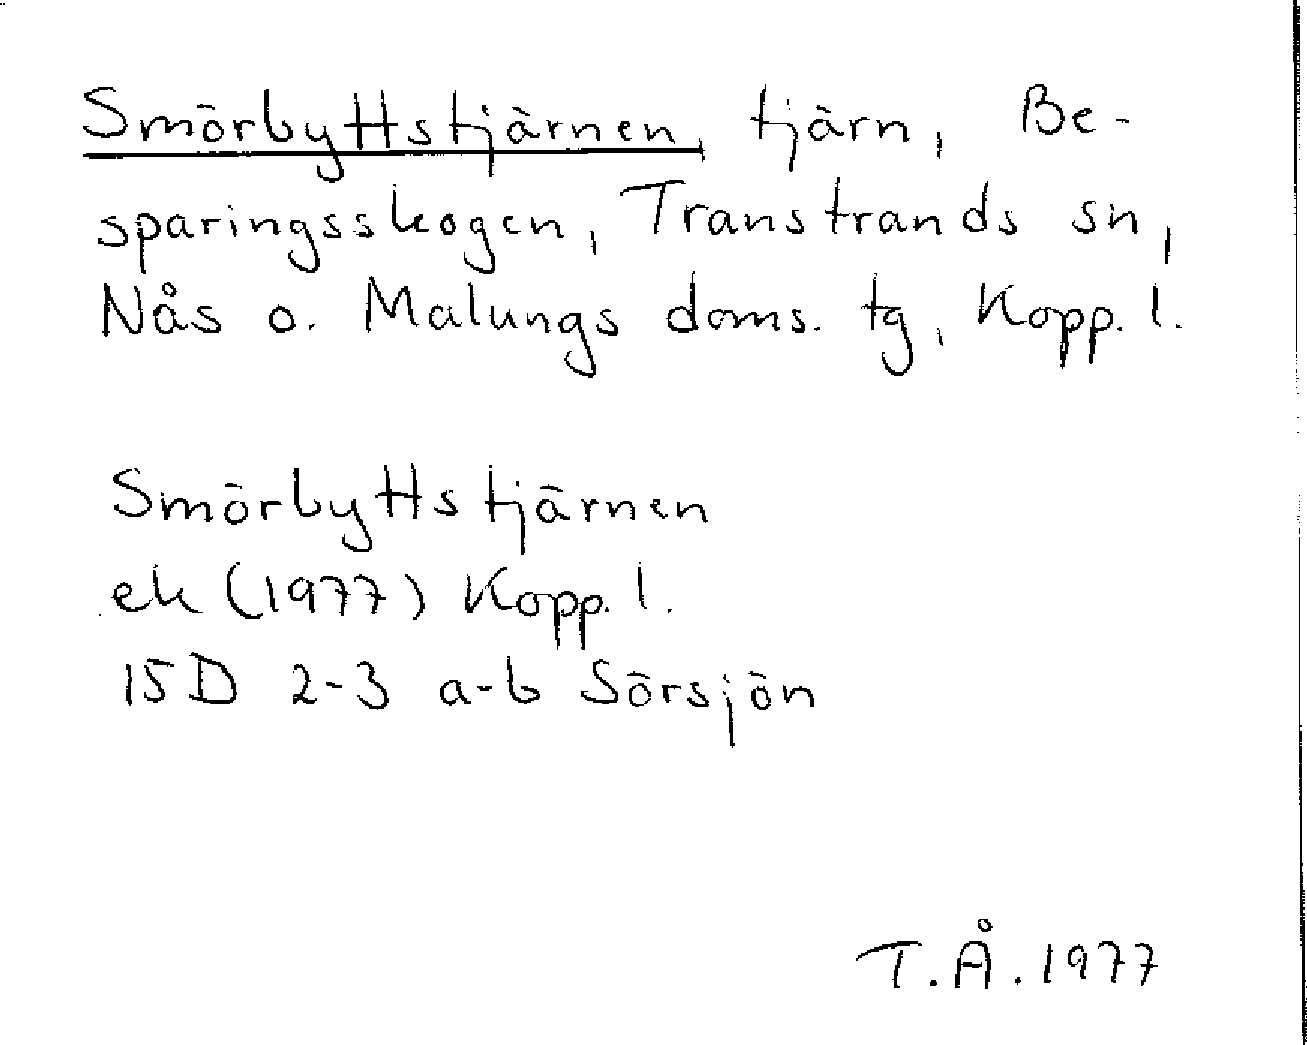 Smörbyttstjärnen, tjärn, Be-
sparingsskogen, Transtrands sn,
Nås o. Malungs doms. tg, Kopp. l.
Smörbyttstjärnen
ek (1977) Kopp. l.
15D 2-3 a-b Sörsjön
T.Å. 1977